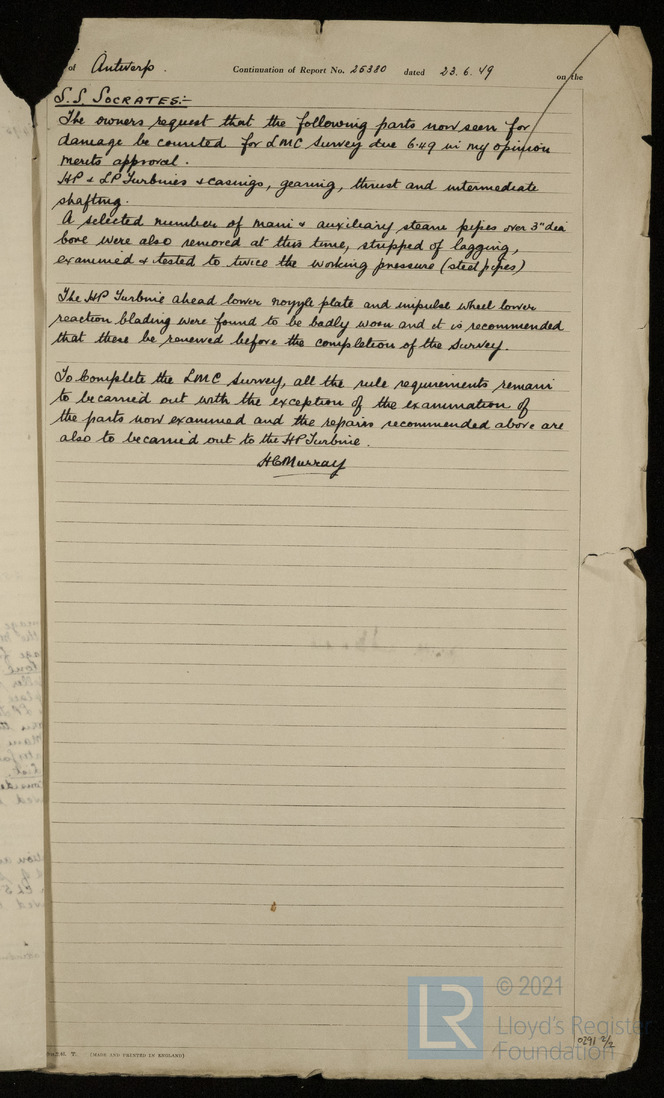 of Antwerp. Continuation of Report No. 25380 dated 23.6.49 on the
S.S. SOCRATES:-
The owners request that the following parts now seen for
damage be counted for LMC Survey due 6.49 in my opinion
merits approval.
HP & LP Turbines & casings, gearing, thrust and intermediate
shafting.
A selected number of main & auxiliary steam pipes over 3" dia
bore were also removed at this time, stripped of lagging,
examined & tested to twice the working pressure (steel pipes)
The HP Turbine ahead lower nozzle plate and impulse wheel lower
reaction blading were found to be badly worn and it is recommended
that these be renewed before the completion of the Survey.
To Complete the LMC Survey, all the rule requirements remain
to be carried out with the exception of the examination of
the parts now examined and the repairs recommended above are
also to be carried out to the HP Turbine.
HCMurray
T. (MADE AND PRINTED IN ENGLAND)
LR
© 2021
Lloyd's Register
Foundation
0291 2/2